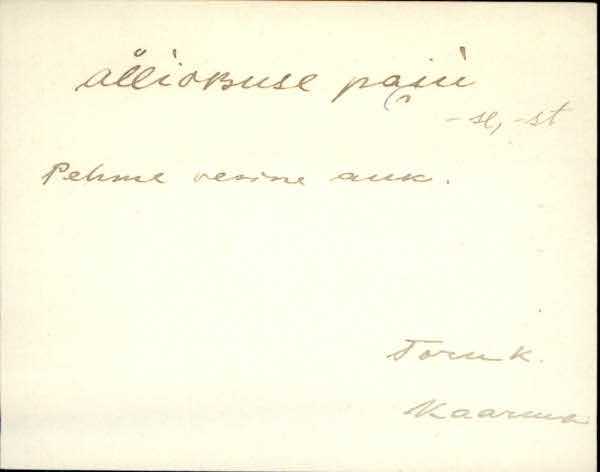 älliokuse pajii
-se, -st
Pehme vesine auk.
Toru k.
Kaarma